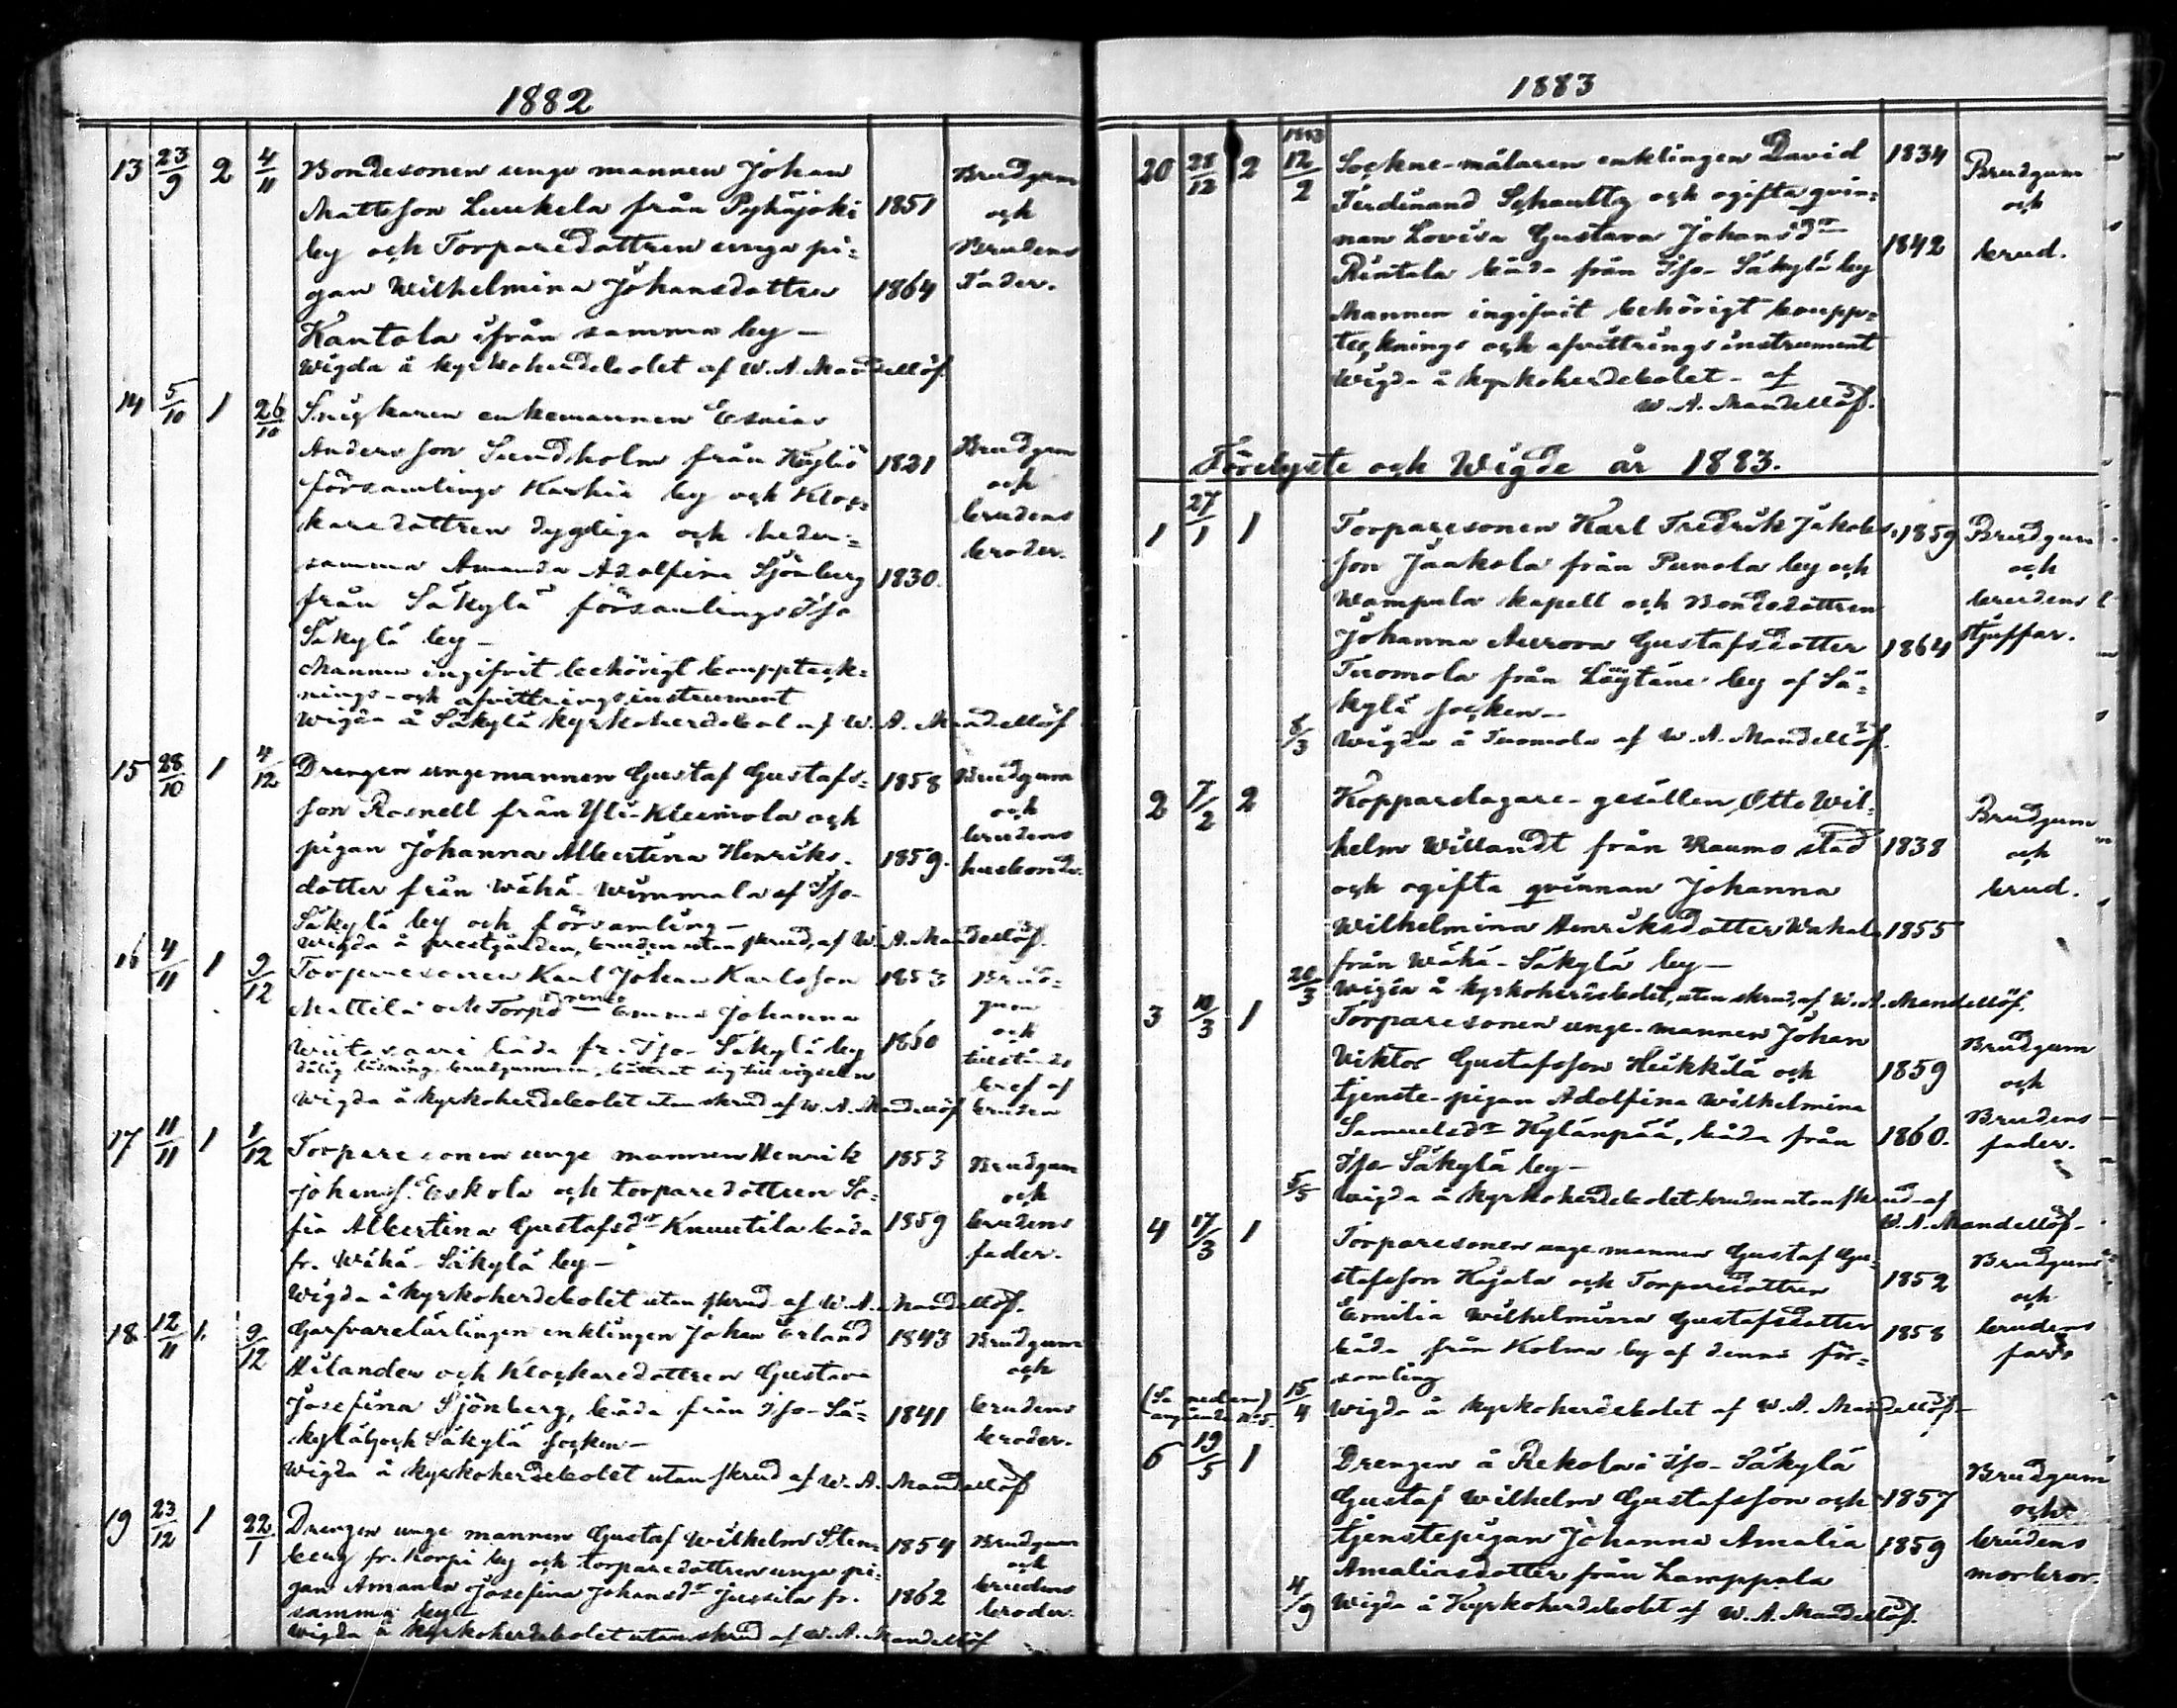 1882
13 23/9 2 4/11 Bondesonen unge mannen Johan Brudgum
Mattsson Luukela från Pyhäjoki 1851 och
by och Torparedottren unga pi= Brudens
gan Wilhelmina Johansdotter 1864 Fader.
Kantola ifrån samma by —
Wigda å kyrkoherdebolet af W. A. Mandellöf
14 5/10 1 26/10 Snickaren enkemannen Esaias
Andersson Sundholm från Kjuliö 1821 Brudgum
församlings by och Kloc= och
karedottren dygdiga och heder= brudens
samma Amanda Adolfina Sjönberg 1830. broder.
från Säkylä församlings Iso
Säkylä by —
Mannen ingifvit behörigt boupptek=
nings- och afvittringsinstrument
Wigda å Säkylä kyrkoherdebol af W. A. Mandellöf
15 28/10 1 4/12 Drengen ungemannen Gustaf Gustafs= 1858 Brudgum
son Rosnell från Yli-Kleimola och och
pigan Johanna Albertina Henriks- 1859. brudens
dotter från Wähä-Wimmala af Iso- husbonde.
Säkylä by och församling —
Wigda å prestgården, bruden utan skrud, af W. A. Mandellöf.
16 4/11 1 9/12 Torparesonen Karl Johan Karlsson 1853 Brud=
Mattila och Torpd Emma Johanna gum
Wiitasaari båda fr. Iso-Säkylä by 1860 och
dålig läsning, brudgummen, bättrat sig till vigseln bref af
Wigda å kyrkoherdebolet utan skrud af W. A. Mandellöf bruden
17 11/11 1 1/12 Torparesonen unge mannen Henrik 1853 Brudgum
Johanss. Eskola och torparedottren So= och
fia Albertina Gustafsdr Knuutila båda 1859 brudens
fr. Wähä-Säkylä by — fader.
Wigda å kyrkoherdebolet utan skrud af W. A. Mandellöf.
18 12/11 1. 9/12 Garfvarelärlingen enklingen Johan Erland 1843 Brudgum
Hilander och Klockaredottren Gustava och
Josefina Sjönberg, båda från Iso-Sä= 1841 brudens
kylä by och Säkylä socken — broder.
Wigda å kyrkoherdebolet utan skrud af W. A. Mandellöf
19 23/12 1 22/1 Drengen unge mannen Gustaf Wilhelm Sten= 1854 Brudgum
berg fr. Korpi by och torparedottren unga pi= och
gan Amanda Josefina Johansdr Jussila fr. 1862 brudens
samma by — broder.
Wigda å kyrkoherdebolet utan skrud af W. A. Mandellöf
1883
20 28/12 2 1883 12/2 Sockne-målaren enklingen David 1834 Brudgum
Ferdinand Schaultz och ogifta qvin= och
nan Lovisa Gustava Johansdr 1842 brud.
Rintala båda från Iso-Säkylä by
Mannen ingifvit behörigt boupp=
tecknings och afvittrings instrument
Wigda å kyrkoherdebolet - af
W. A. Mandellöf.
Förelyste och Wigde år 1883.
1 27/1 1 Torparesonen Karl Fredrik Jakobs- 1859 Brudgum
son Jaakola från Punola by och och
Wampula kapell och Bondedottren brudens
Johanna Aurora Gustafsdotter 1864 styffar.
Tuomola från Löytäne by af Sä=
kylä socken —
8/3 Wigda å Tuomola af W. A. Mandellöf.
2 7/2 2 Kopparslagare-gesällen Otto Wil= Brudgum
helm Willandt från Raumo stad 1838 och
och ogifta qvinnan Johanna brud.
Wilhelmina Henriksdotter Wahala 1855
från Wähä-Säkylä by —
20/3 Wigda å kyrkoherdebolet, utan skrud, af W. A. Mandellöf.
3 10/3 1 Torparesonen unge-mannen Johan Brudgum
Viktor Gustafsson Heikkilä och 1859 och
tjenste-pigan Adolfina Wilhelmina Brudens
Samuelsdr Kylänpää, båda från 1860. fader.
Iso-Säkylä by —
5/5 Wigda å kyrkoherdebolet bruden utan skrud af
W. A. Mandellöf-
4 17/3 1 Torparesonen unge mannen Gustaf Gu= Brudgum
stafsson Kojala och Torparedottren 1852 och
Emilia Wilhelmina Gustafsdotter 1858 brudens
båda från Kolma by af denna för= far
samling
(Se nedan) angående No 5. 15/4 Wigda å kyrkoherdebolet af W. A. Mandellöf-
6 19/5 1 Drengen å Rekola i Iso-Säkylä Brudgum
Gustaf Wilhelm Gustafsson och 1857 och
tjenstepigan Johanna Amalia 1859 brudens
Amaliasdotter från Lamppala morbror.
4/9 Wigda å Kyrkoherdebolet af W. A. Mandellöf.